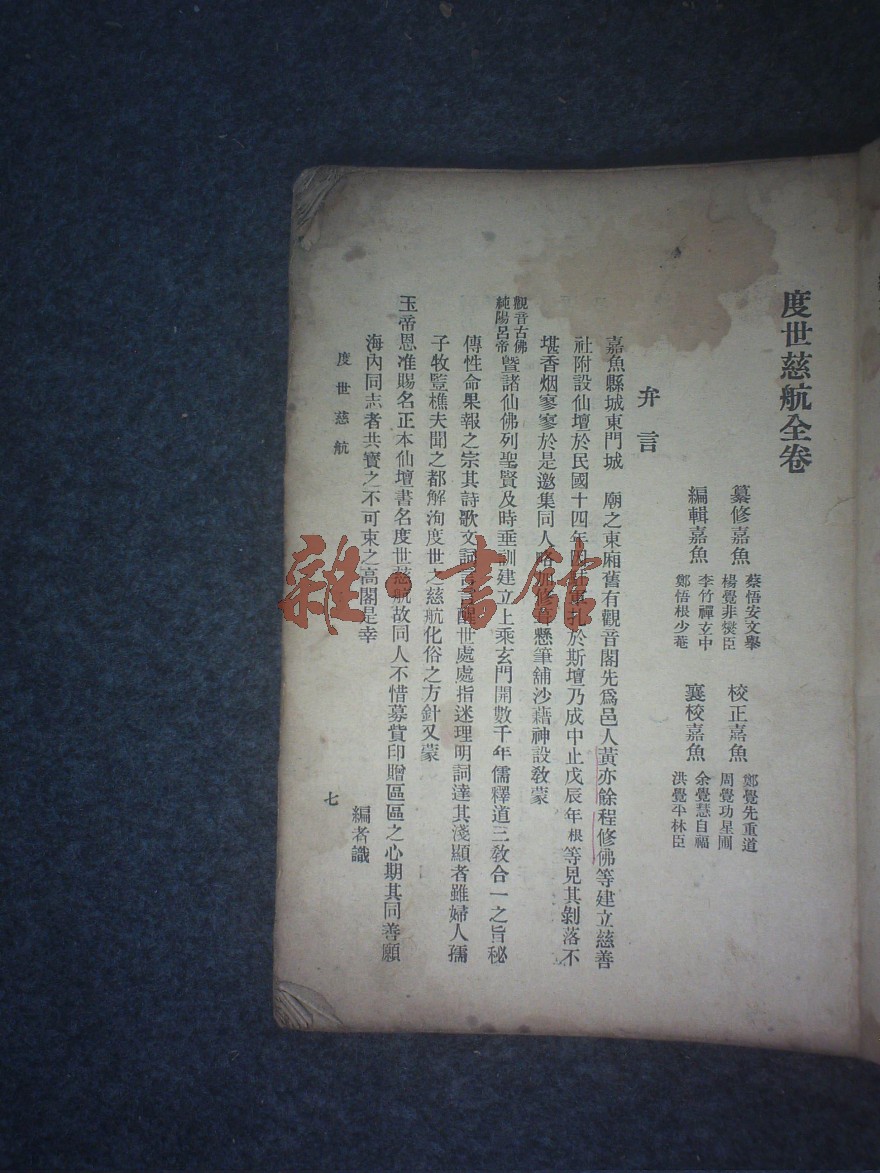 度世慈航全卷
纂修嘉魚 蔡悟安文舉 楊覺非燮臣
校正嘉魚 鄭覺先重道 周覺功星圃
編輯嘉魚 李竹禪玄中 鄭悟根少菴
襄校嘉魚 余覺慧自福 洪覺平林臣
弁言
嘉魚縣城東門城 廟之東廂舊有觀音閣先爲邑人黃亦餘程修佛等建立慈善
社附設仙壇於民國十四年因 於斯壇乃成中止戊辰年根等見其剝落不
堪香烟寥寥於是邀集同人略加修葺懸筆舖沙藉神設敎蒙
觀音古佛
純陽呂帝曁諸仙佛列聖賢及時垂訓建立上乘玄門開數千年儒釋道三敎合一之旨秘
傳性命果報之宗其詩歌文詞言言醒世處處指迷理明詞達其淺顯者雖婦人孺
子牧豎樵夫聞之都解洵度世之慈航化俗之方針又蒙
玉帝恩准賜名正本仙壇書名度世慈航故同人不惜募貲印贈區區之心期其同善願
海內同志者共寶之不可束之高閣是幸
編者識
度世慈航
七
雜·書館